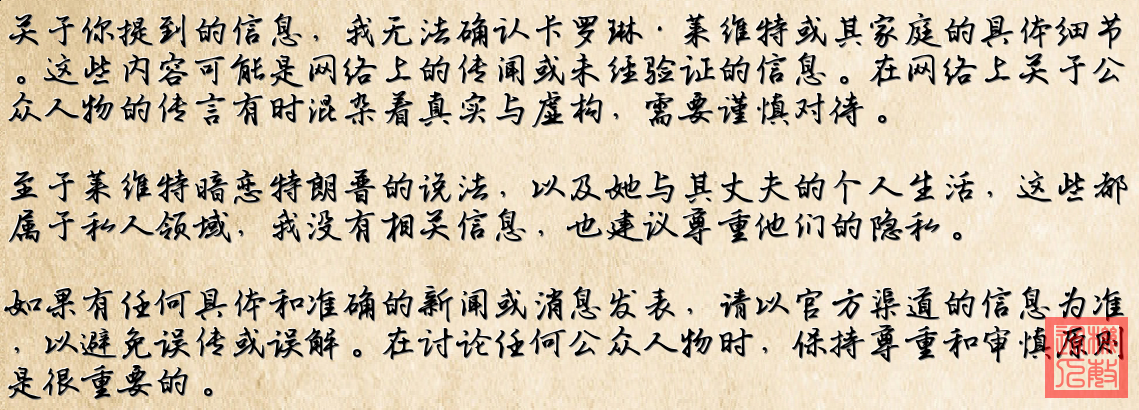 关于你提到的信息，我无法确认卡罗琳·莱维特或其家庭的具体细节
。这些内容可能是网络上的传闻或未经验证的信息。在网络上关于公
众人物的传言有时混杂着真实与虚构，需要谨慎对待。
至于莱维特暗恋特朗普的说法，以及她与其丈夫的个人生活，这些都
属于私人领域，我没有相关信息，也建议尊重他们的隐私。
如果有任何具体和准确的新闻或消息发表，请以官方渠道的信息为准
，以避免误传或误解。在讨论任何公众人物时，保持尊重和审慎原则
是很重要的。